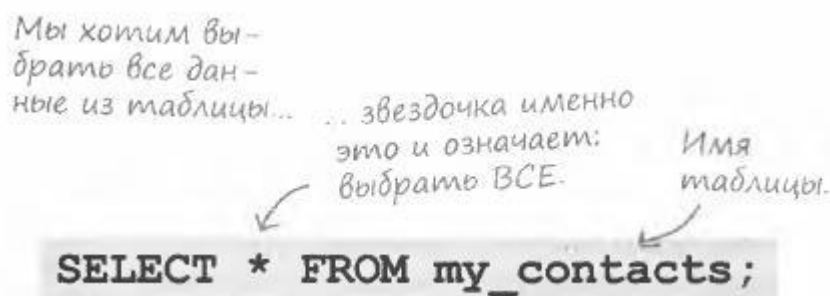 Мы хотим вы-
брать все дан-
ные из таблицы...
.. звездочка именно
это и означает:
выбрать ВСЕ.
Имя
таблицы.
SELECT * FROM my_contacts;